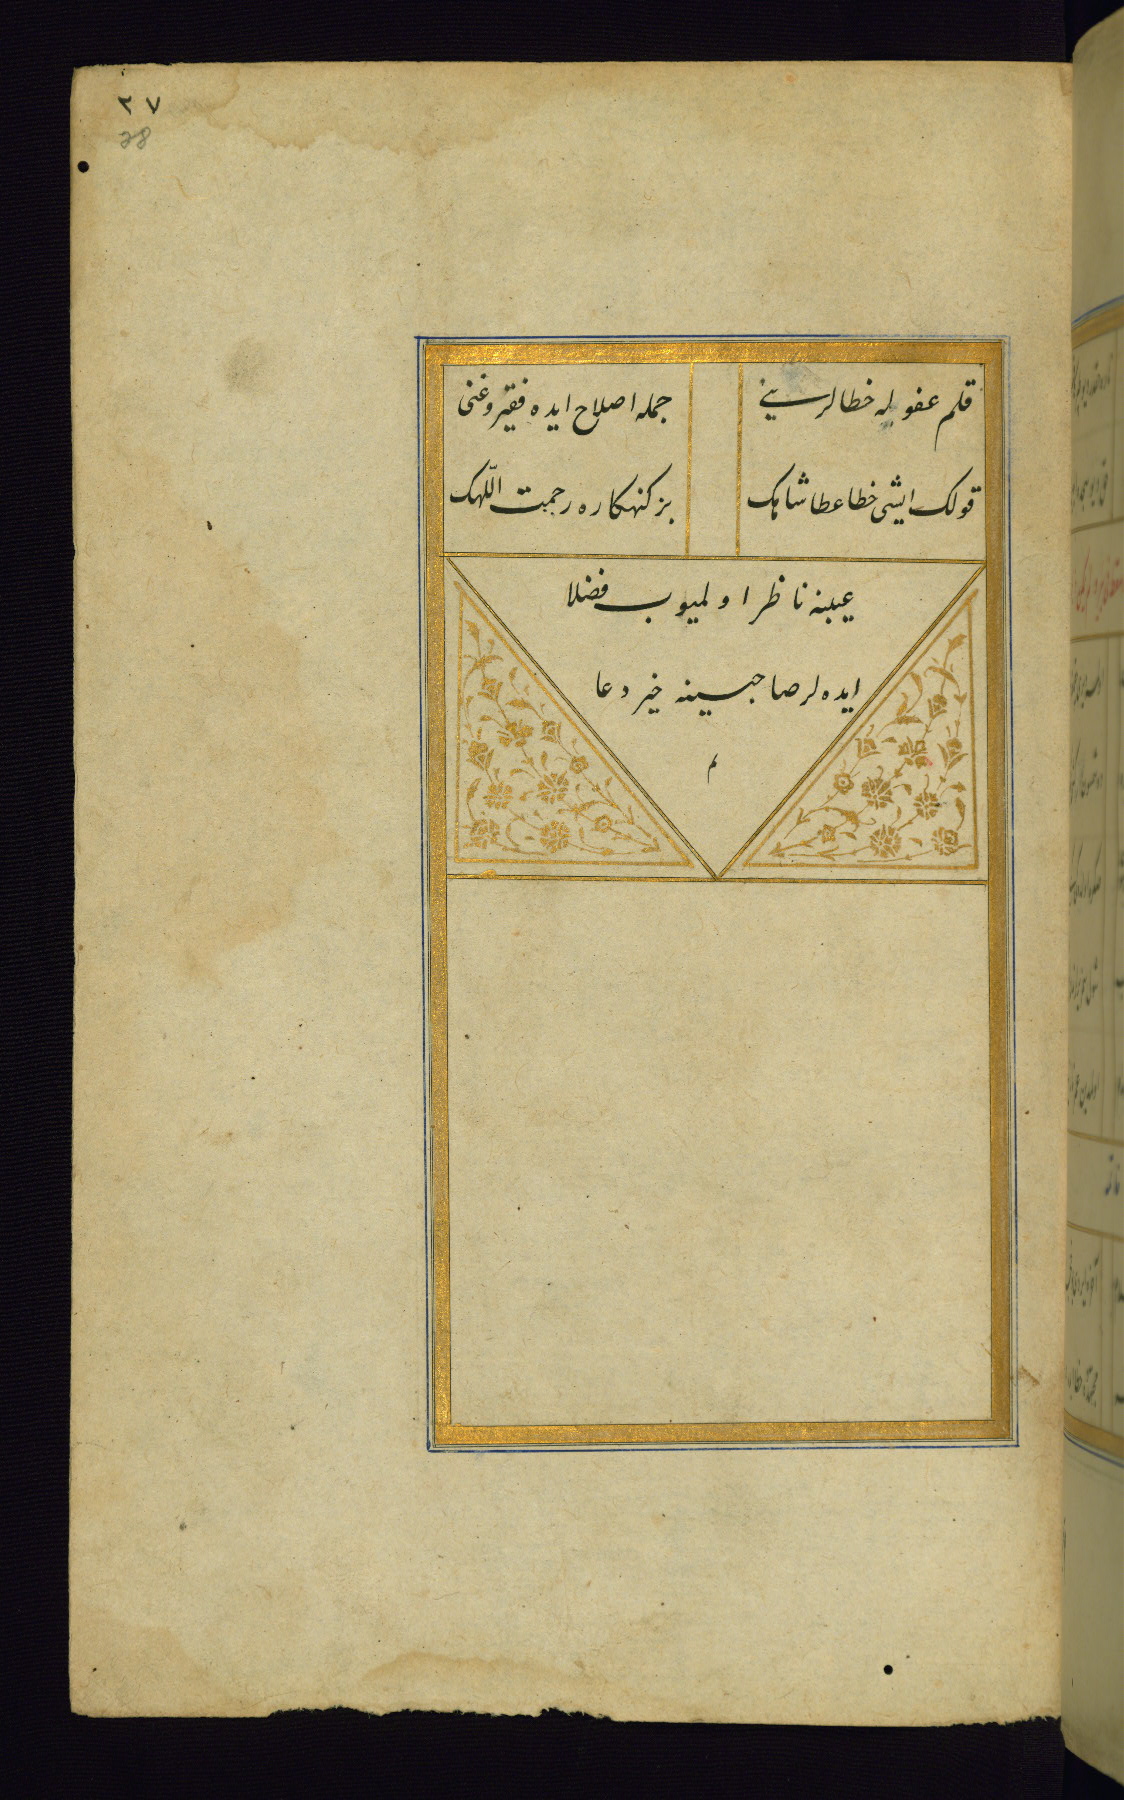 ٢٧
28
قلم عفو له خطالرینی
جمله اصلاح ایده فقیر و غنی
قولک ایشی خطا عطا شاهک
بز کنهکاره رحمت اللهک
عیبنه ناظر اولمیوب فضلا
ایده لر صاحبینه خیر دعا
م